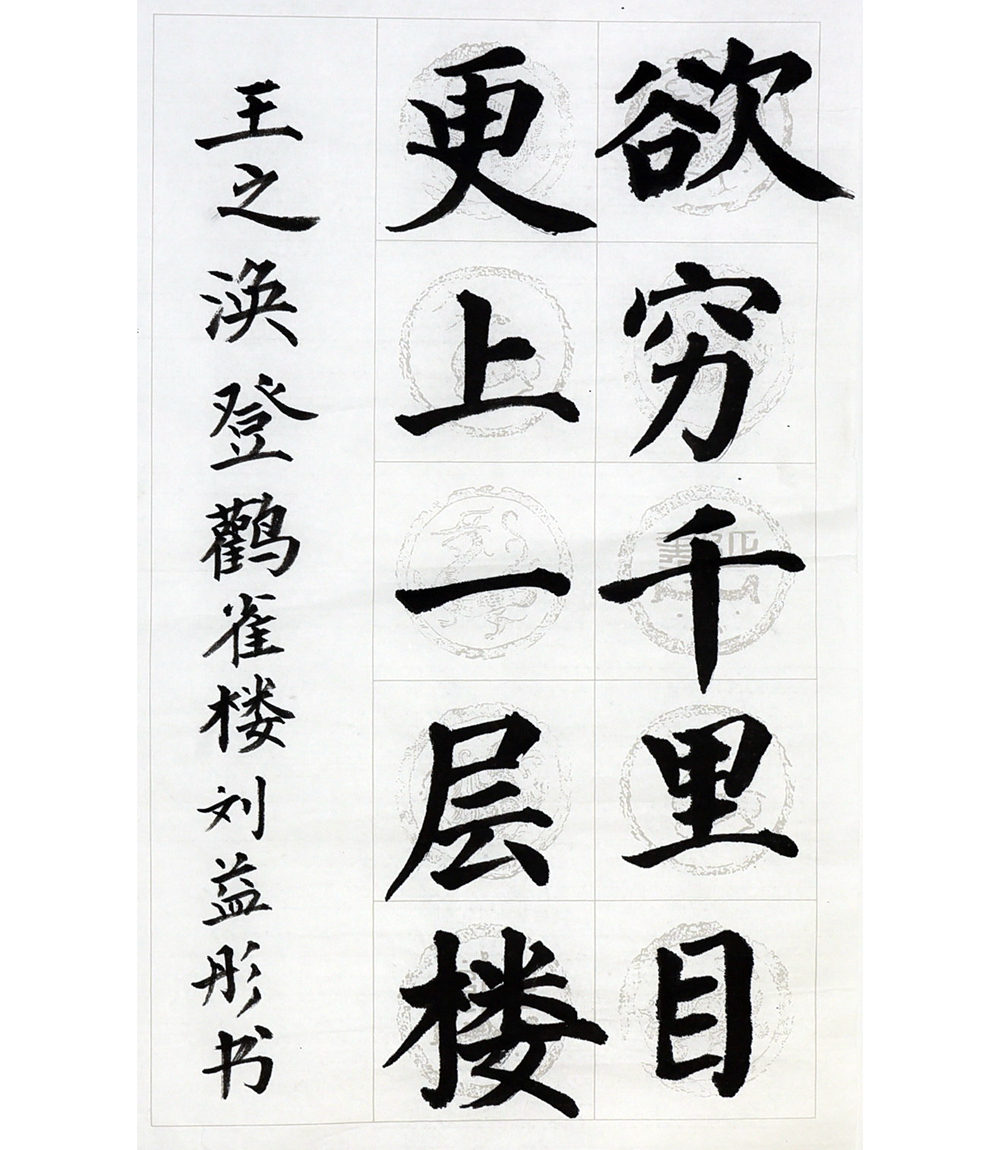 欲穷千里目
更上一层楼
王之涣登鹳雀楼刘益彤书